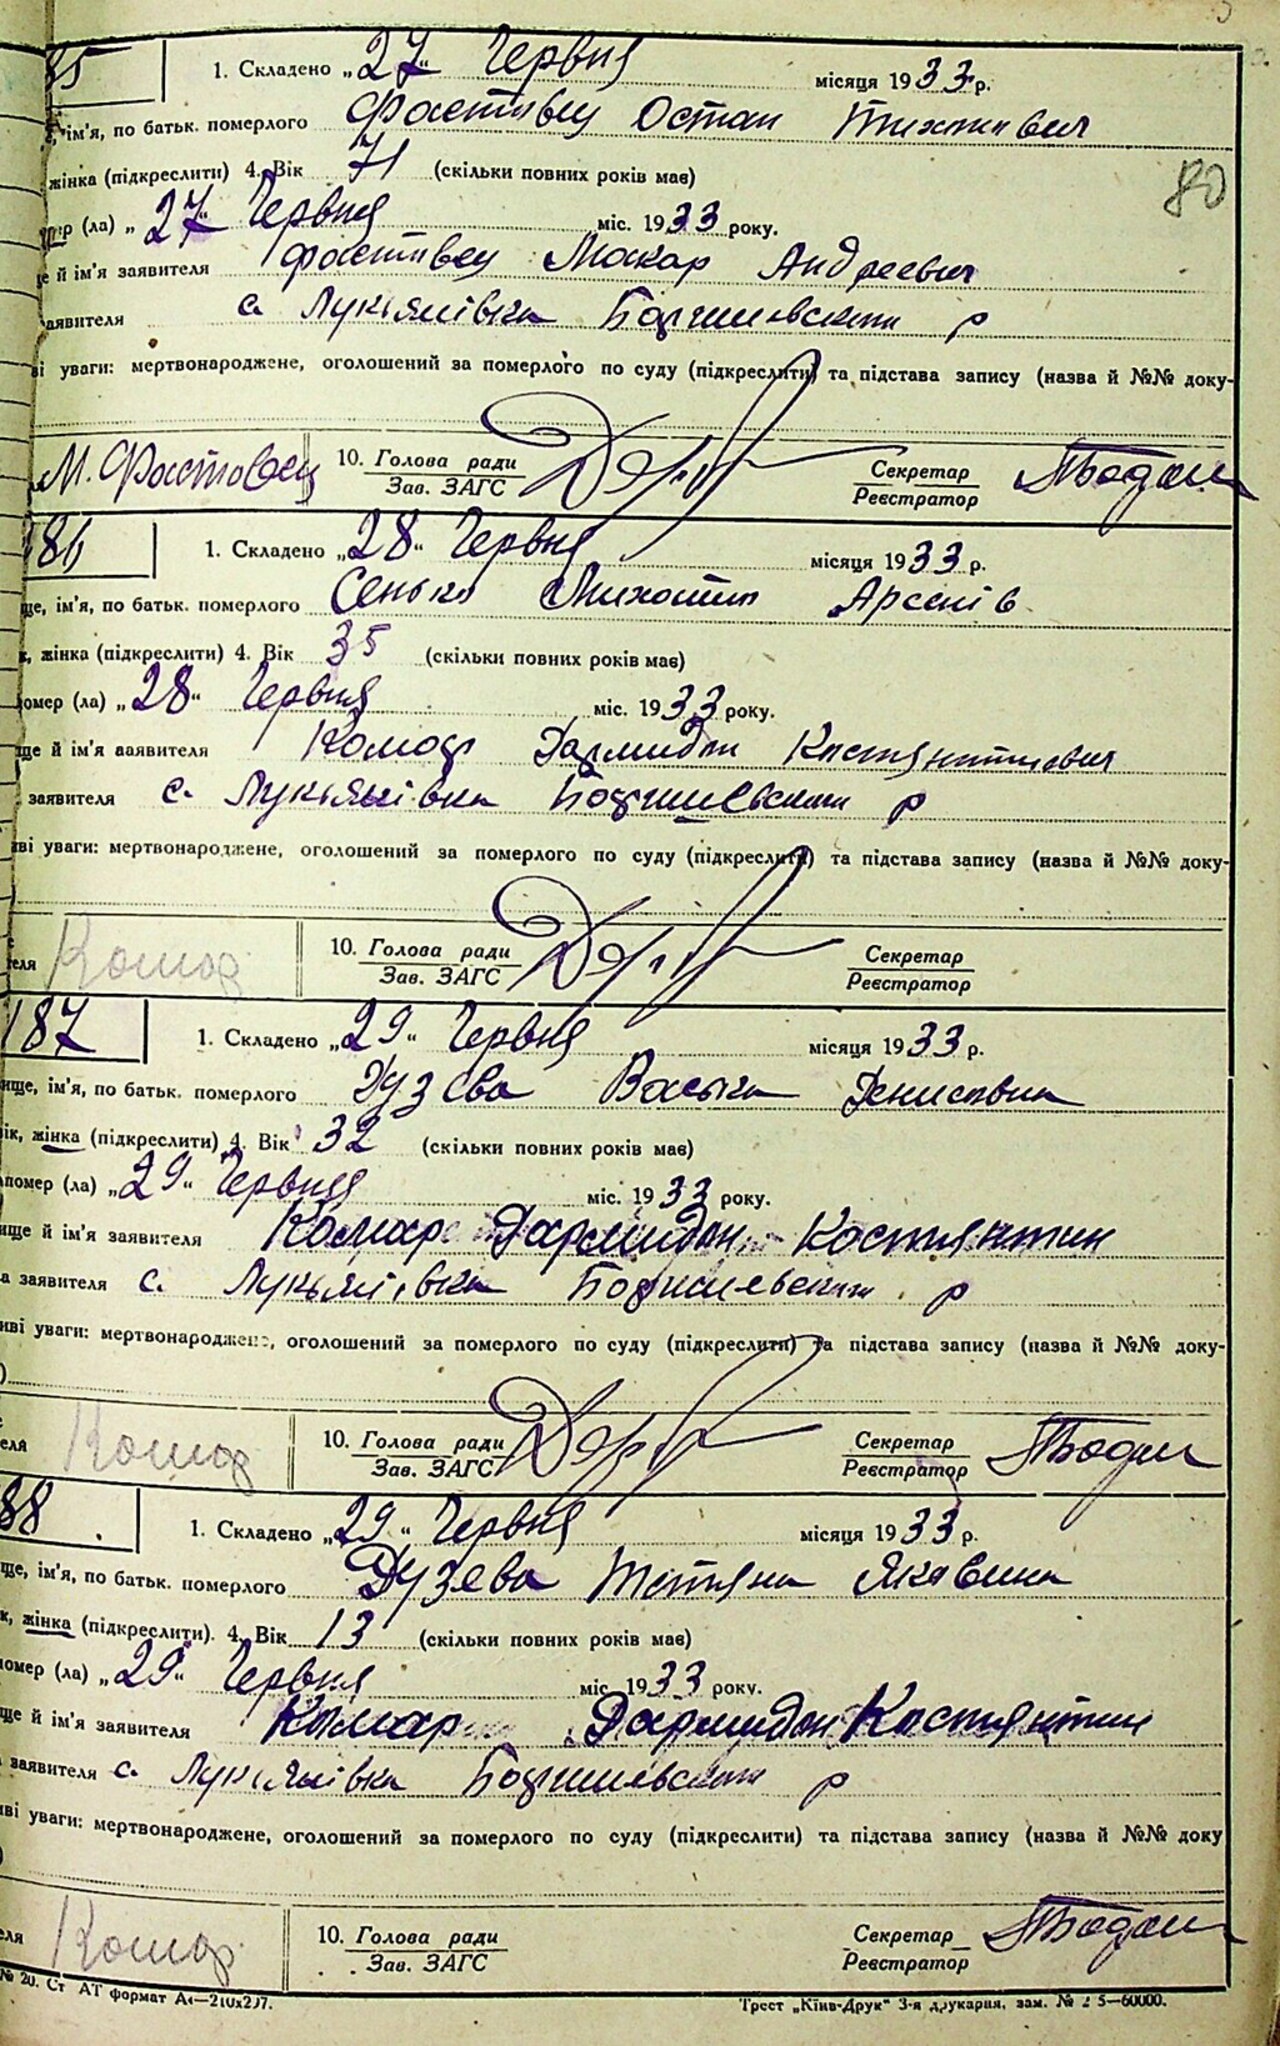 85
1. Складено „27“ Червня місяця 1933 р.
ім'я, по батьк. померлого Фастивец Остап Тихонович
жінка (підкреслити) 4. Вік 71 (скільки повних років має)
(ла) „27“ Червня міс. 1933 року.
й ім'я заявителя Фастивец Макар Андреевич
аявителя с. Лукьянівка Баришевского р
ві уваги: мертвонароджене, оголошений за померлого по суду (підкреслити) та підстава запису (назва й №№ доку-
М. Фастовец 10. Голова ради Секретар
Зав. ЗАГС Реєстратор
186
1. Складено „28“ Червня місяця 1933 р.
ще, ім'я, по батьк. померлого Сенько Арсенів
жінка (підкреслити) 4. Вік 35 (скільки повних років має)
омер (ла) „28“ Червня міс. 1933 року.
ще й ім'я заявителя Комар Дармидон Костянтинович
заявителя с. Лукьянівка Баришевского р
иві уваги: мертвонароджене, оголошений за померлого по суду (підкреслити) та підстава запису (назва й №№ доку-
теля Комар 10. Голова ради Секретар
Зав. ЗАГС Реєстратор
187
1. Складено „29“ Червня місяця 1933 р.
ище, ім'я, по батьк. померлого Дузева Васька Денисовна
ік, жінка (підкреслити) 4. Вік 32 (скільки повних років має)
помер (ла) „29“ Червня міс. 1933 року.
ище й ім'я заявителя Комар Дармидон Костянтин
а заявителя с. Лукьянівка Баришевского р
иві уваги: мертвонароджене, оголошений за померлого по суду (підкреслити) та підстава запису (назва й №№ доку-
еля Комар 10. Голова ради Секретар
Зав. ЗАГС Реєстратор
88
1. Складено „29“ Червня місяця 1933 р.
ще, ім'я, по батьк. померлого Дузева Татяна Яковина
к, жінка (підкреслити). 4. Вік 13 (скільки повних років має)
помер (ла) „29“ Червня міс. 1933 року.
ще й ім'я заявителя Комар Дармидон Костянтин
заявителя с. Лукьянівка Баришевского р
иві уваги: мертвонароджене, оголошений за померлого по суду (підкреслити) та підстава запису (назва й №№ доку
еля Комар 10. Голова ради Секретар
Зав. ЗАГС Реєстратор
№ 20. Ст АТ формат А4—210х297.
Трест „Київ-Друк“ 3-я друкарня, зам. № 5—60000.
80